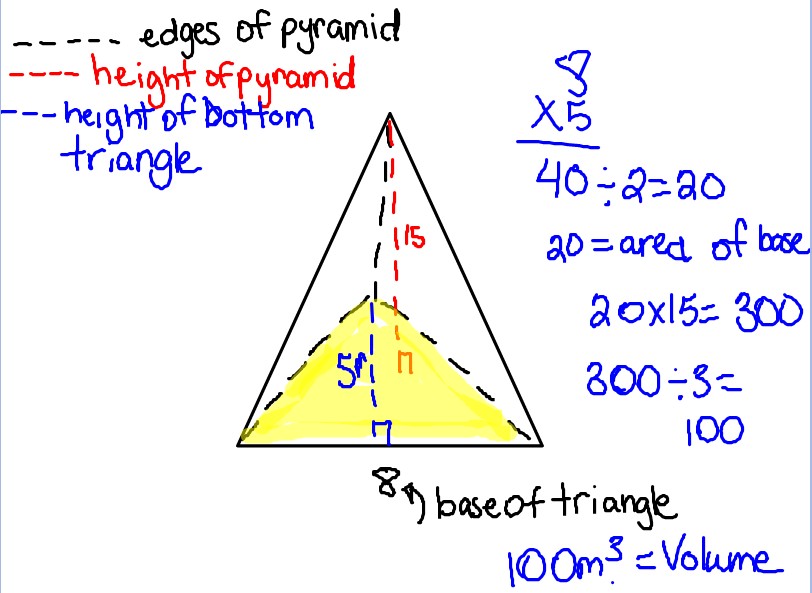 ----- edges of pyramid
---- height of pyramid
--- height of bottom
triangle
8
X5
40÷2=20
20=area of base
20x15=300
300÷3=
100
15
5m
8
base of triangle
100m³=Volume